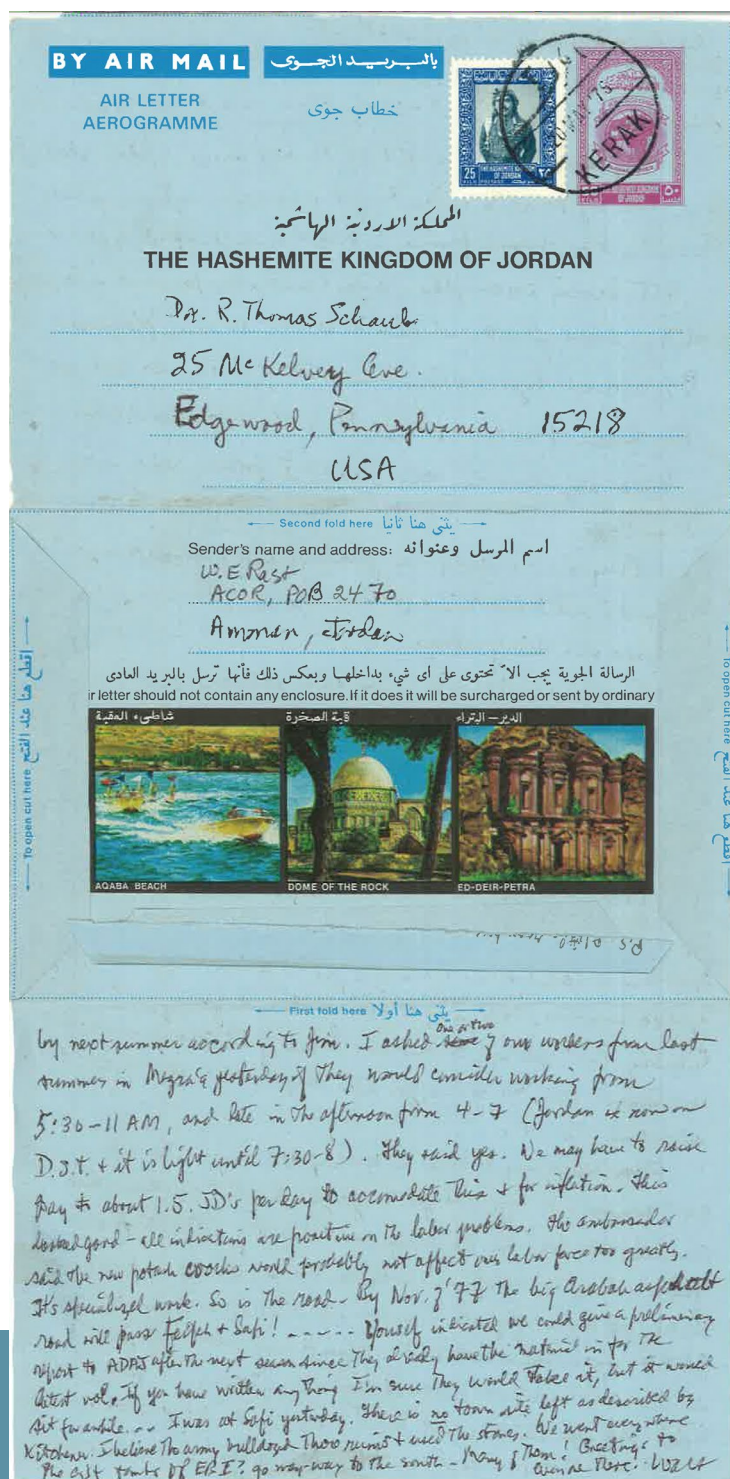 BY AIR MAIL بالبريد الجوى
AIR LETTER
AEROGRAMME
خطاب جوى
20 MAY 75
KERAK
25 FILS POSTAGE
THE HASHEMITE KINGDOM OF JORDAN
المملكة الاردنية الهاشمية
THE HASHEMITE KINGDOM OF JORDAN
Dr. R. Thomas Schaub
25 McKelvey Ave.
Edgewood, Pennsylvania 15218
USA
Second fold here يثنى هنا ثانيا
Sender's name and address: اسم المرسل وعنوانه
W.E. Rast
ACOR, POB 2470
Amman, Jordan
الرسالة الجوية يجب الا تحتوى على اى شيء بداخلها وبعكس ذلك فأنها ترسل بالبريد العادى
ir letter should not contain any enclosure. If it does it will be surcharged or sent by ordinary
شاطىء العقبة قبة الصخرة الدير - البتراء
AQABA BEACH DOME OF THE ROCK ED-DEIR-PETRA
To open cut here اقطع هنا عند الفتح
To open cut here اقطع هنا عند الفتح
P.S.
First fold here يثنى هنا أولا
by next summer according to Jim. I asked one or two of our workers from last
summer in Mazra'a yesterday if they would consider working from
5:30-11 AM, and late in the afternoon from 4-7 (Jordan is now on
D.S.T. & it is light until 7:30-8). They said yes. We may have to raise
pay to about 1.5. JD's per day to accomodate this & for inflation. This
looked good - all indications are positive on the labor problems. The ambassador
said the new potash works would probably not affect our labor force too greatly.
It's specialized work. So is the road - By Nov. of '77 the big Arabah asphalt
road will pass Feifeh & Safi! ----- Yousef indicated we could give a preliminary
report to ADAJ after the next season since they already have the material in for the
latest vol. If you have written anything I'm sure they would take it, but it would
sit for awhile... I was at Safi yesterday. There is no town site left as described by
Kitchener. I believe the army bulldozed those ruins & used the stones. We went everywhere
The cist tombs of EB I? go way-way to the south - Many of them! Greetings to
everyone there. Walt